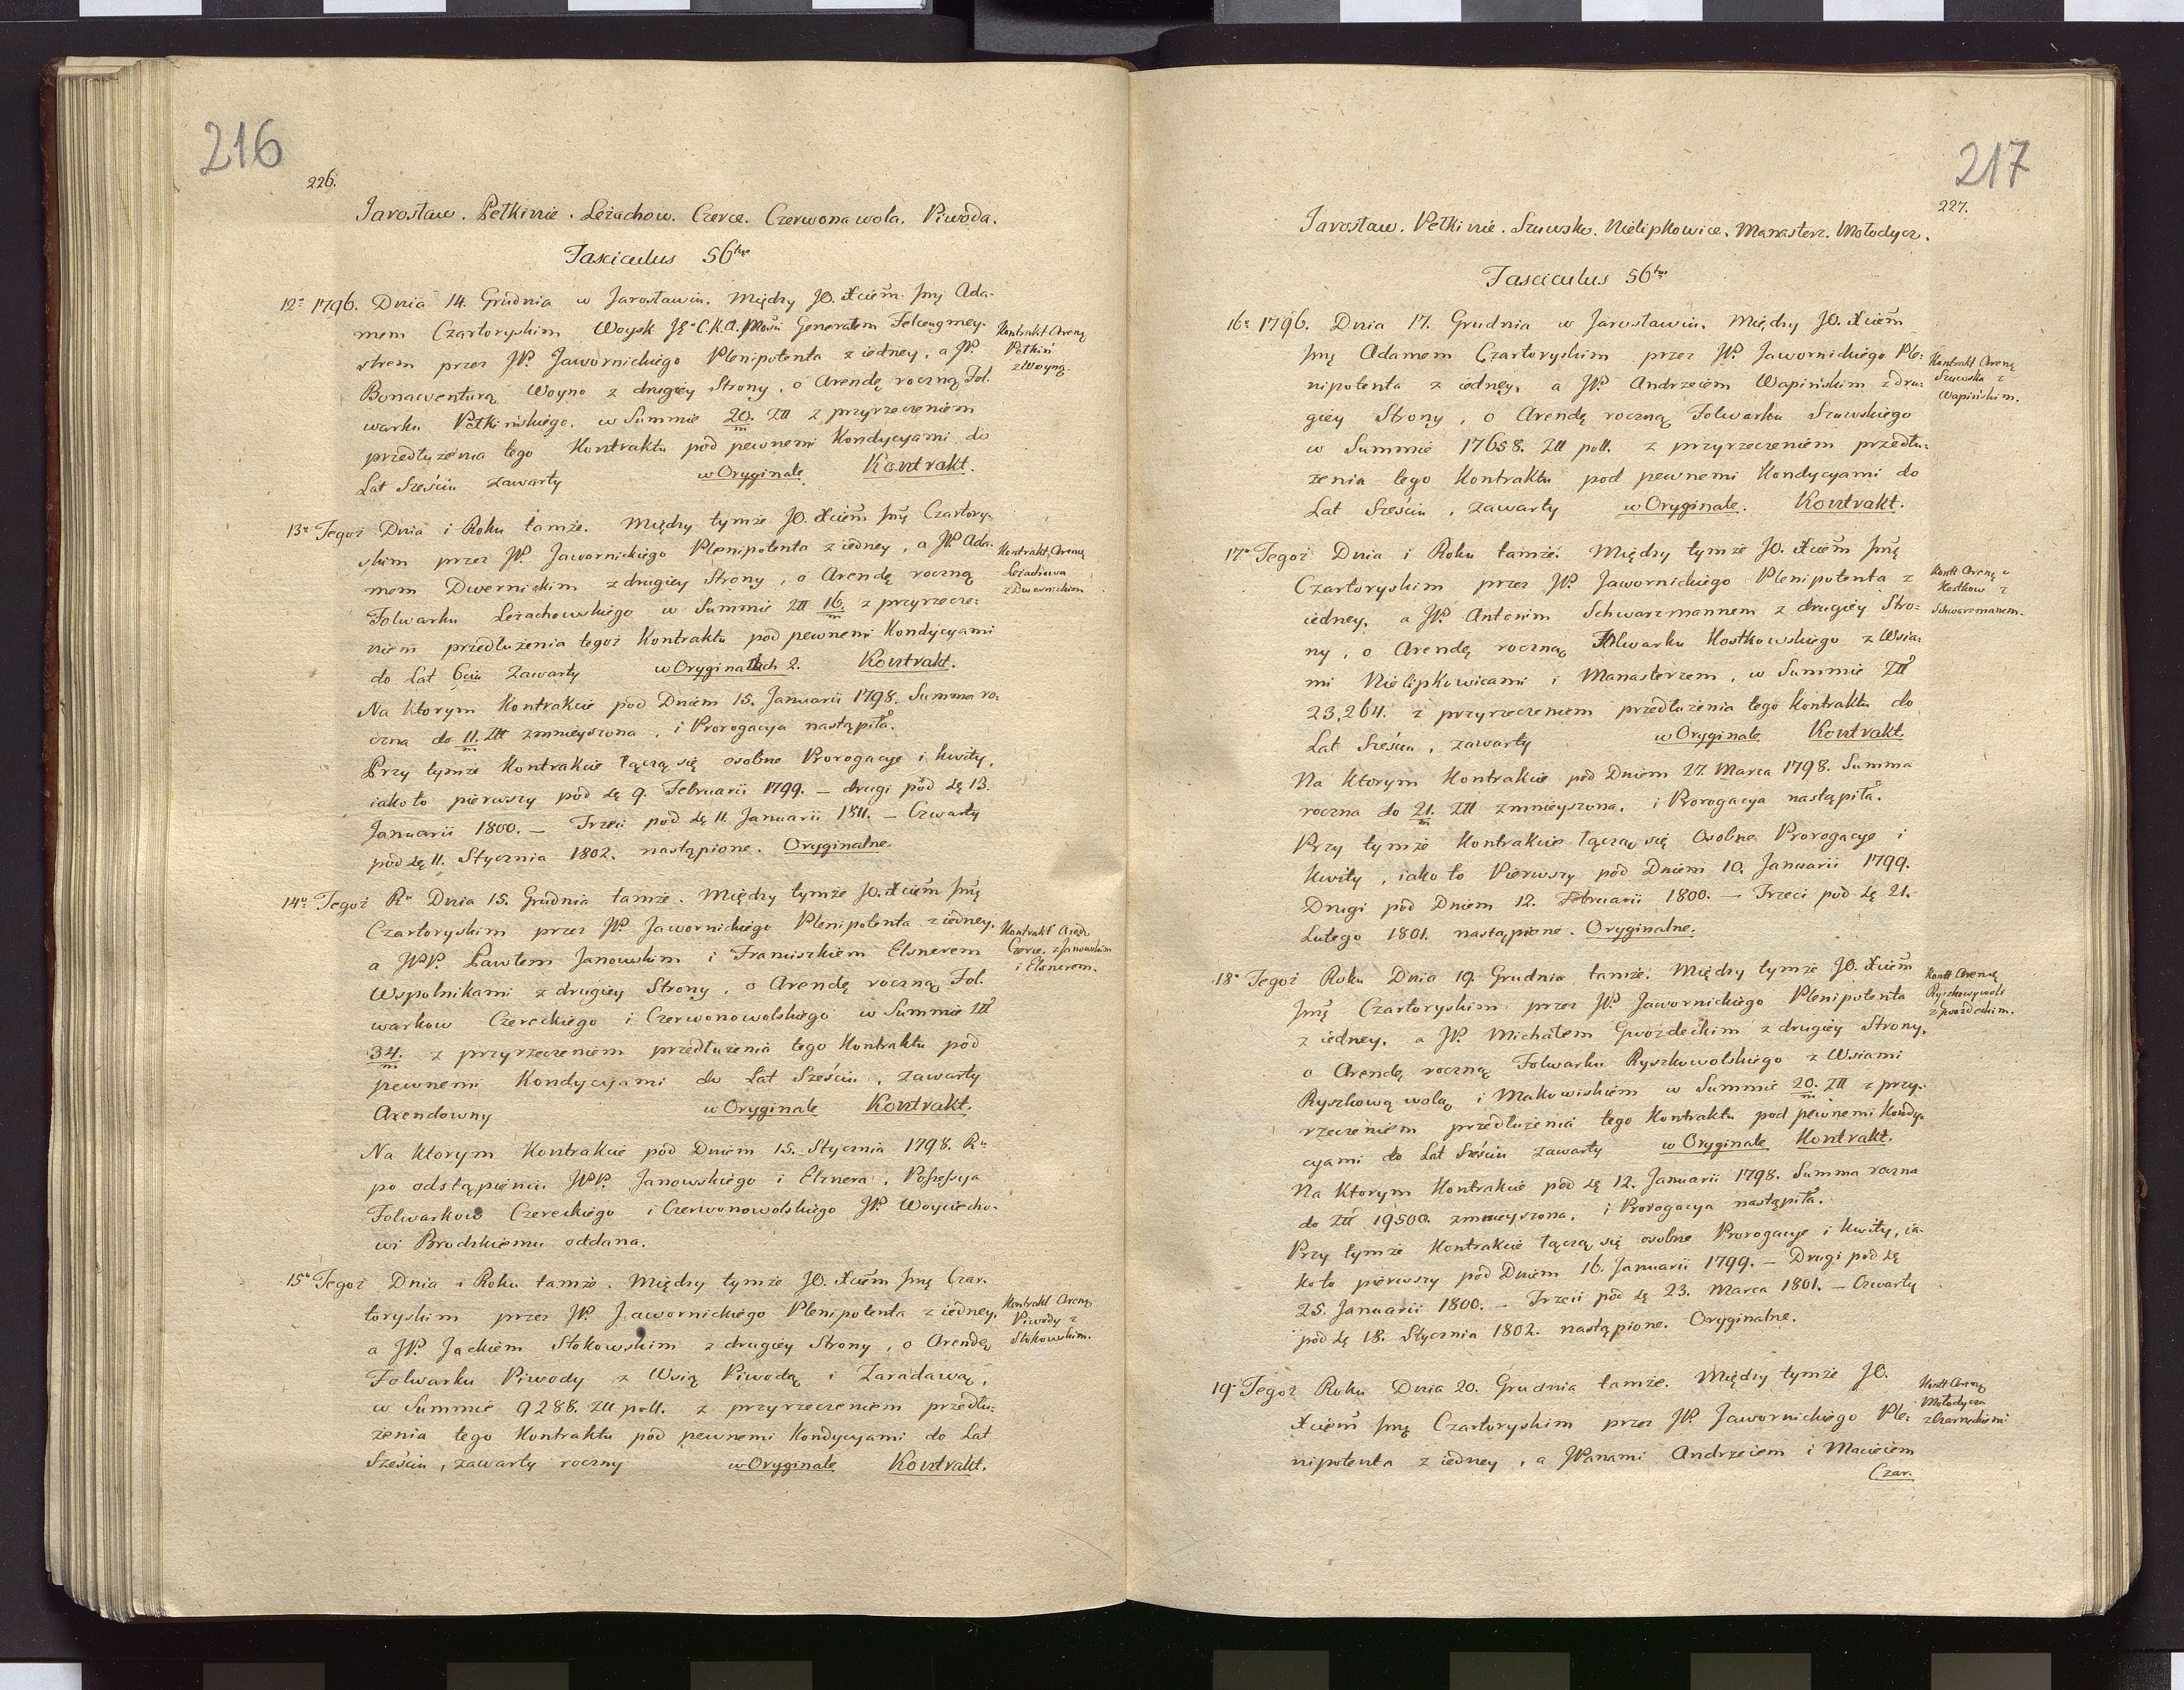 216
226.
Jarosław. Pełkinie. Leżachow. Czerce. Czerwona wola. Piwoda.
Fasciculus 56tus
12o 1796. Dnia 14. Grudnia w Jarosławiu. Między JO. Xciem Jmę Ada-
mem Czartoryskim Woysk JęoC.K.A. Mości Generałem Felceugmey-
strem przez JP. Jawornickiego Plenipotenta z iedney, a JP.
Bonawenturą Woyno z drugiey Strony, o Arendę roczną Fol-
warku Pełkińskiego, w Summie 20/m Złł z przyrzeczeniem
przedłużenia tego Kontraktu pod pewnemi Kondycyami do
Lat Sześciu zawarty w Oryginale Kontrakt.
Kontrakt Arendę
Pełkiń
z Woyną.
13o Tegoż Dnia i Roku tamże. Między tymże JO. Xciem Jmę Czartory-
skim przez JP. Jawornickiego Plenipotenta z iedney, a JP. Ada-
mem Dwernickim z drugiey Strony, o Arendę roczną
Folwarku Leżachowskiego w Summie Złł 16/m z przyrzecze-
niem przedłużenia tegoż Kontraktu pod pewnemi Kondycyami
do Lat 6ciu Zawarty w Oryginałach 2. Kontrakt.
Kontrakt Arendę
Leżachowa
z Dwernickim
Na ktorym Kontrakcie pod Dniem 15. Januarii 1798. Summa ro-
czna do 11/m Złł zmnieyszona, i Prorogacya nastąpiła.
Przy tymże Kontrakcie łączą się osobne Prorogacye i kwity,
iako to pierwszy pod dę 9. Februarii 1799. – drugi pod dę 13.
Januarii 1800. – Trzeci pod dę 11. Januarii 1811. – Czwarty
pod dę 11. Stycznia 1802. nastąpione. Oryginalne.
14o Tegoż Ru Dnia 15. Grudnia tamże. Między tymże JO. Xciem Jmę
Czartoryskim przez JP. Jawornickiego Plenipotenta z iedney,
a JPP. Pawłem Janowskim i Franciszkiem Elsnerem
Wspolnikami z drugiey Strony, o Arendę roczną Fol-
warkow Czereckiego i Czerwonowolskiego w Summie Złł
34/m z przyrzeczeniem przedłużenia tego Kontraktu pod
pewnemi Kondycyami do Lat Sześciu, zawarty
Arendowny w Oryginale Kontrakt.
Kontrakt Arend.
Czerc. z Janowskim
i Elsnerem.
Na ktorym Kontrakcie pod Dniem 15. Stycznia 1798. Ru
po odstąpieniu JPP. Janowskiego i Elznera, Possessya
Folwarkow Czereckiego i Czerwonowolskiego JP. Woyciecho-
wi Brodzkiemu oddana.
15o Tegoż Dnia i Roku tamże. Między tymże JO. Xciem Jmę Czar-
toryskim przez JP. Jawornickiego Plenipotenta z iedney,
a JP. Jackiem Stokowskim z drugiey Strony, o Arendę
Folwarku Piwody z Wsią Piwodą i Zaradawą,
w Summie 9288. Złł poll. z przyrzeczeniem przedłu-
żenia tego Kontraktu pod pewnemi Kondycyami do Lat
Sześciu, zawarty roczny w Oryginale Kontrakt.
Kontrakt Arendę
Piwody z
Stokowskim.
217
227.
Jarosław. Pełkinie. Szuwsko. Nielipkowice. Manasterz. Mołodycz.
Fasciculus 56tus
16o 1796. Dnia 17. Grudnia w Jarosławiu. Między JO. Xciem
Jmę Adamem Czartoryskim przez JP. Jawornickiego Ple-
nipotenta z iedney, a JP. Andrzeiem Wapińskim z dru-
giey Strony, o Arendę roczną Folwarku Szuwskiego
w Summie 17658. Złł poll. z przyrzeczeniem przedłu-
żenia tego Kontraktu pod pewnemi Kondycyami do
Lat Sześciu, zawarty w Oryginale. Kontrakt.
Kontrakt Arendę
Szuwska z
Wapińskim.
17o Tegoż Dnia i Roku tamże. Między tymże JO. Xciem Jmę
Czartoryskim przez JP. Jawornickiego Plenipotenta z
iedney, a JP. Antonim Schwarzmannem z drugiey Stro-
ny, o Arendę roczną Folwarku Kostkowskiego z Wsia-
mi Nielipkowicami i Manasterzem, w Summie Złł
23,264. z przyrzeczeniem przedłużenia tego Kontraktu do
Lat Sześciu, zawarty w Oryginale Kontrakt.
Kontt Arendę
Kostkow z
Schwarzmanem.
Na ktorym Kontrakcie pod Dniem 27. Marca 1798. Summa
roczna do 21/m Złł zmnieyszona, i Prorogacya nastąpiła.
Przy tymże Kontrakcie łączą się Osobne Prorogacye i
kwity, iako to Pierwszy pod Dniem 10. Januarii 1799.
Drugi pod Dniem 12. Februarii 1800. – Trzeci pod dę 21.
Lutego 1801. nastąpione. Oryginalne.
18o Tegoż Roku Dnia 19. Grudnia tamże. Między tymże JO. Xciem
Jmę Czartoryskim przez JP. Jawornickiego Plenipotenta
z iedney, a JP. Michałem Gwozdeckim z drugiey Strony,
o Arendę roczną Folwarku Ryszkowolskiego z Wsiami
Ryszkową wolą i Makowiskiem w Summie 20/m Złł z przy-
rzeczeniem przedłużenia tego Kontraktu pod pewnemi Kondy-
cyami do Lat Sześciu zawarty w Oryginale Kontrakt.
Kontt Arendę
Ryszkowywoli
z Gwozdeckim.
Na Ktorym Kontrakcie pod dę 12. Januarii 1798. Summa roczna
do Złł 19500. zmnieyszona, i Prorogacya nastąpiła.
Przy tymże Kontrakcie łączą się osobne Prorogacye i kwity, ia-
ko to pierwszy pod Dniem 16. Januarii 1799. – Drugi pod dę
25. Januarii 1800. – Trzeci pod dę 23. Marca 1801. – Czwarty
pod dę 18. Stycznia 1802. nastąpione. Oryginalne.
19o Tegoż Roku Dnia 20. Grudnia tamże. Między tymże JO.
Xciem Jmę Czartoryskim przez JP. Jawornickiego Ple-
nipotenta z iedney, a JPanami Andrzeiem i Macieiem
Czar-
Kontt Arendę
Mołodycza
z Czarneckiemi